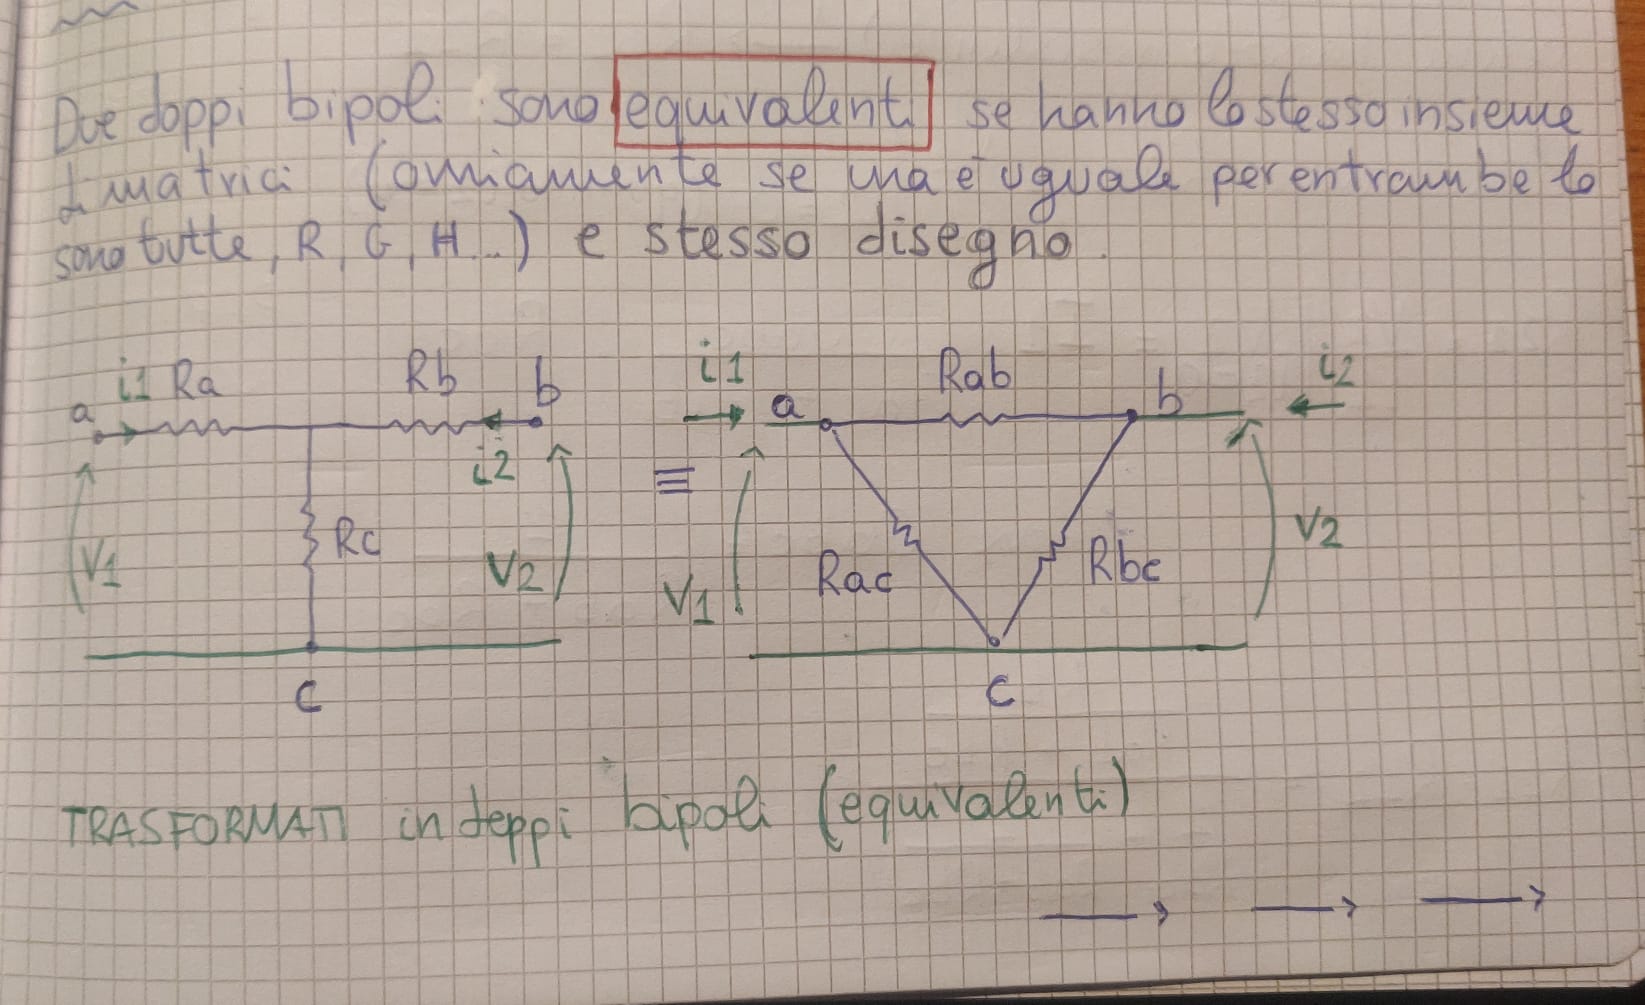 Due doppi bipoli sono equivalenti se hanno lo stesso insieme
di matrici (ovviamente se una è uguale per entrambe lo
sono tutte, R, G, H...) e stesso disegno.
i1 Rab i2
a i1 Ra Rb b a b
i2 ≡
V1 Rc V2 V1 Rac Rbc V2
C C
TRASFORMATI in doppi bipoli (equivalenti)